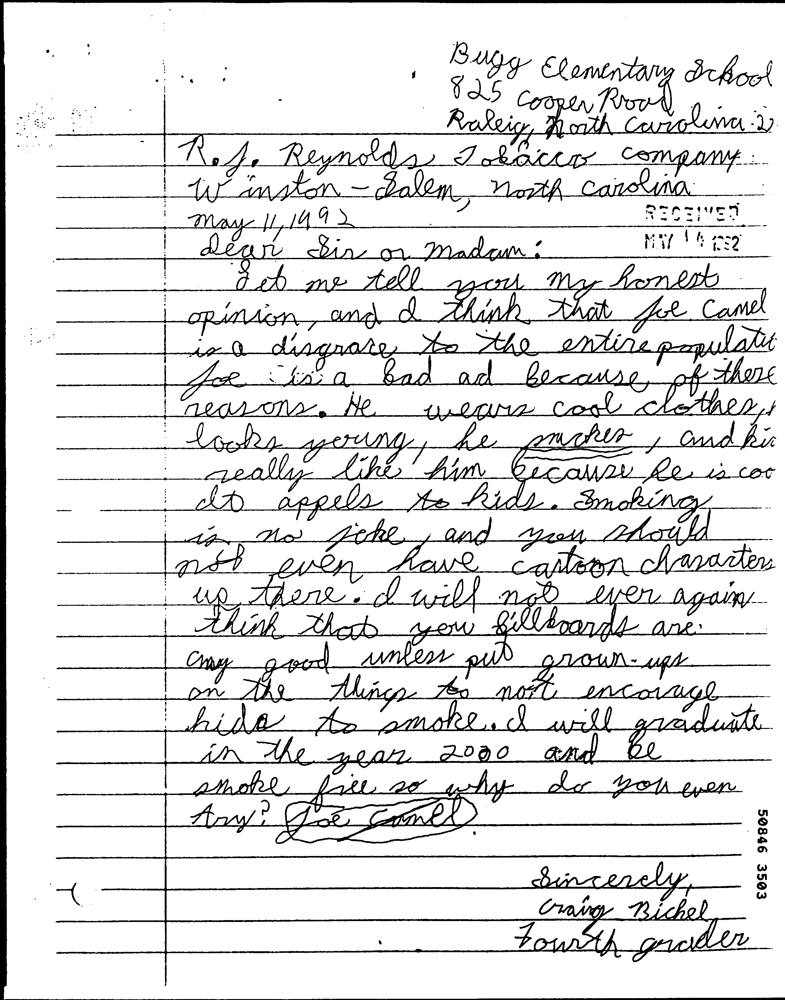 Bugg Elementary School
825 Cooper Road
Raleig, North Carolina 2
R.J. Reynolds Tobacco company
Winston-Salem, North Carolina
May 11, 1992
RECEIVED
MAY 14 1992
Dear Sir or Madam:
Let me tell you my honest
opinion, and I think that Joe Camel
is a disgrace to the entire populati
Joe is a bad ad because of these
reasons. He wears cool clothes,
looks young, he smokes, and ki
really like him because he is coo
It appels to kids. Smoking
is no joke, and you should
not even have cartoon charaters
up there. I will not ever again
think that you billboards are
any good unless put grown-ups
on the things to nort encorage
kids to smoke. I will graduate
in the year 2000 and be
smoke free so why do you even
try? Joe Camel
50846 3503
Sincerely,
Craig Bichel
Fourth grader